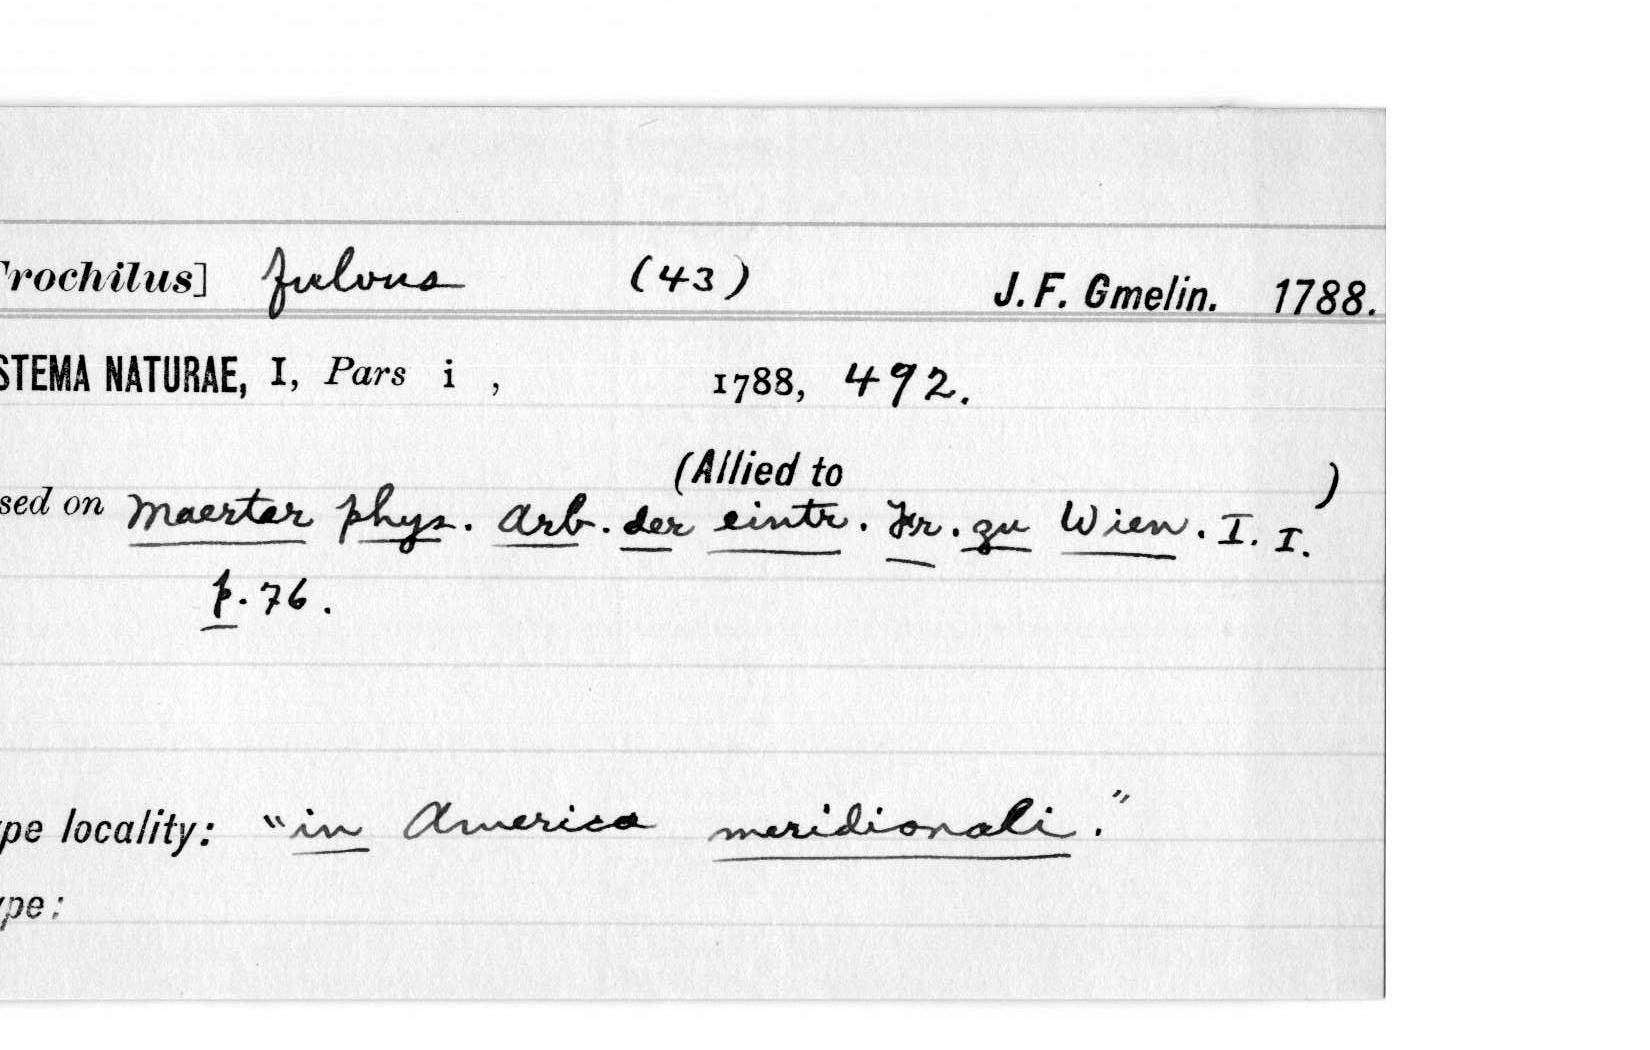 Trochilus] fulvus (43) J. F. Gmelin. 1788.
STEMA NATURAE, I, Pars i , 1788, 492.
(Allied to )
sed on Maerter phys. Arb. der eintr. Fr. zu Wien. I. I.
p. 76.
pe locality: "in America meridionali."
ype: